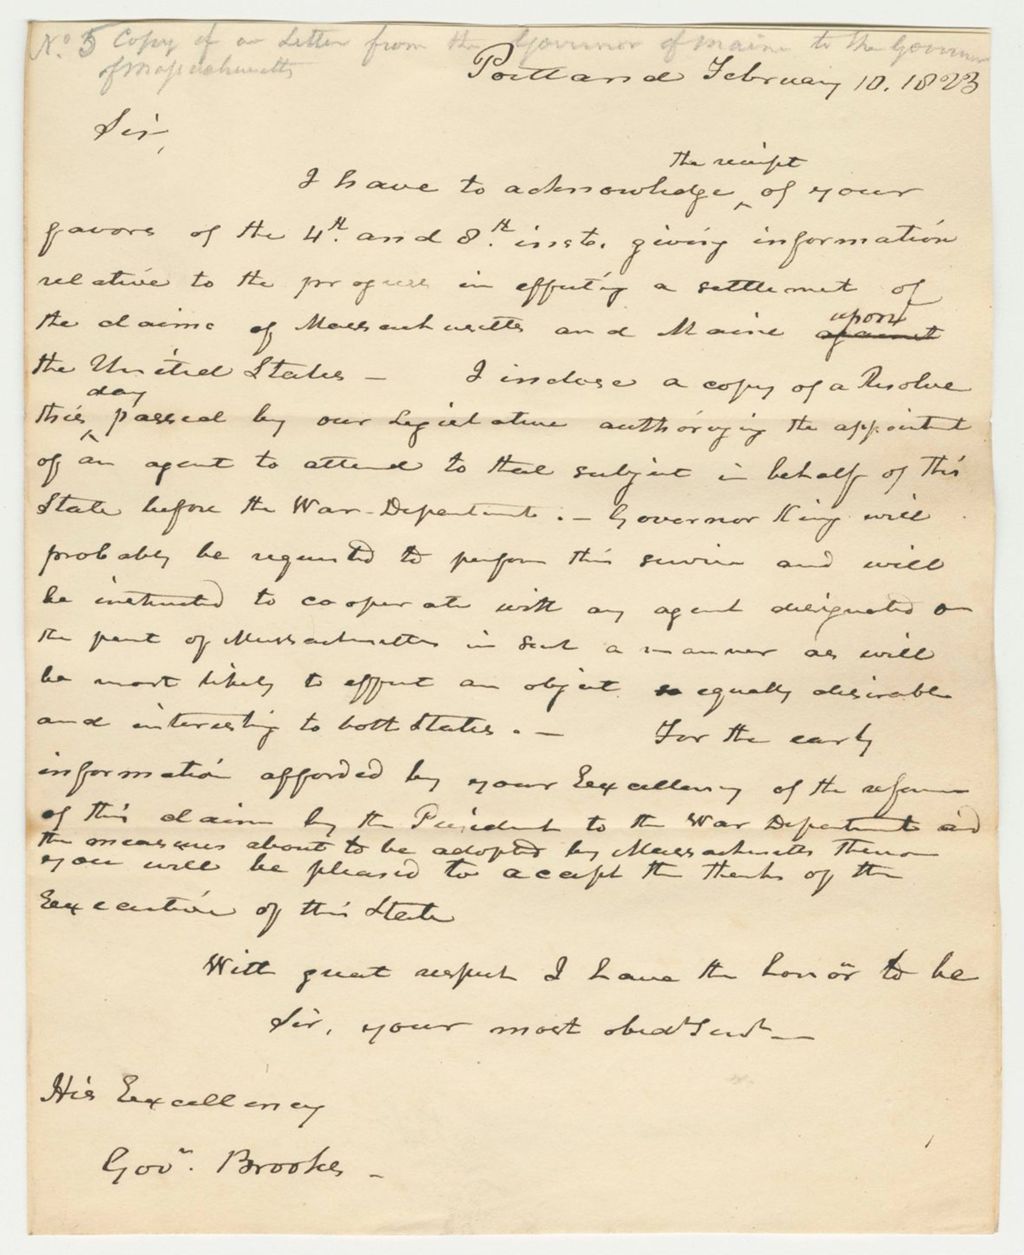 No 5 Copy of a Letter from the Governor of Maine to the Governor
of Massachusetts
Portland February 10. 1823
Sir,
the receipt
I have to acknowledge ‸ of your
favors of the 4th. and 8th. insts. giving information
relative to the progress in effecting a settlement of
upon
the claims of Massachusetts and Maine against
the United States — I inclose a copy of a Resolve
day
this ‸ passed by our Legislature authorizing the appointmt
of an agent to attend to that subject in behalf of this
State before the War-Department. — Governor King will
probably be requested to perform this service and will
be instructed to cooperate with any agent designated on
the part of Massachusetts in such a manner as will
be most likely to effect an object so equally desirable
and interesting to both States. — For the early
information afforded by your Excellency of the reference
of this claim by the President to the War Department and
the measures about to be adopted by Massachusetts thereon
you will be pleased to accept the thanks of the
Executive of this State
With great respect I have the honor to be
Sir, your most obedt Servt —
His Excellency
Govr. Brooks —